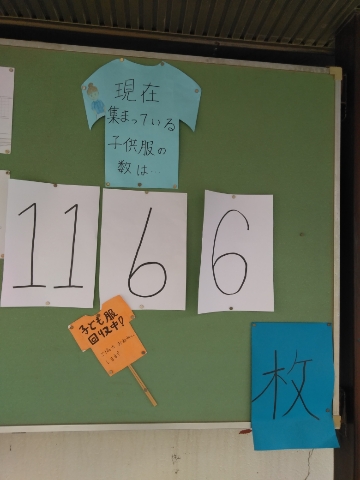 現在
集まっている
子供服の
数は…
11 6 6
子ども服
回収中!
枚